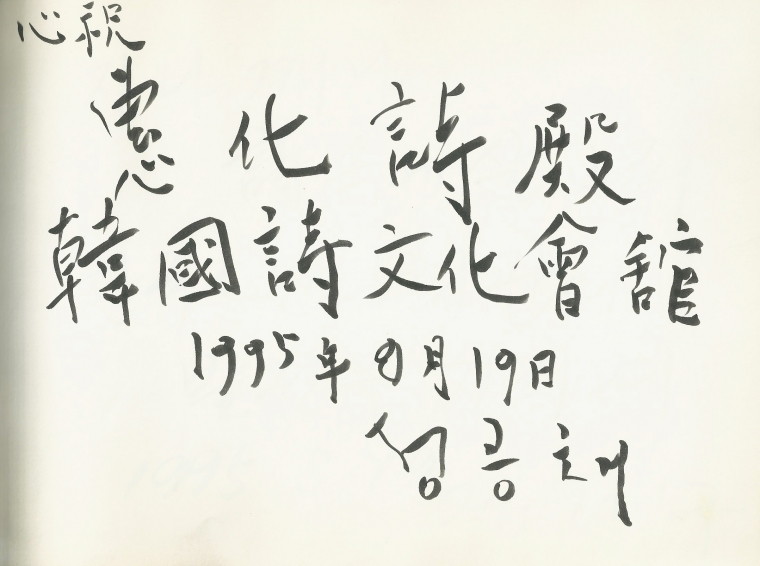 心祝
惠化詩殿
韓國詩文化會舘
1995年 8月 19日
성